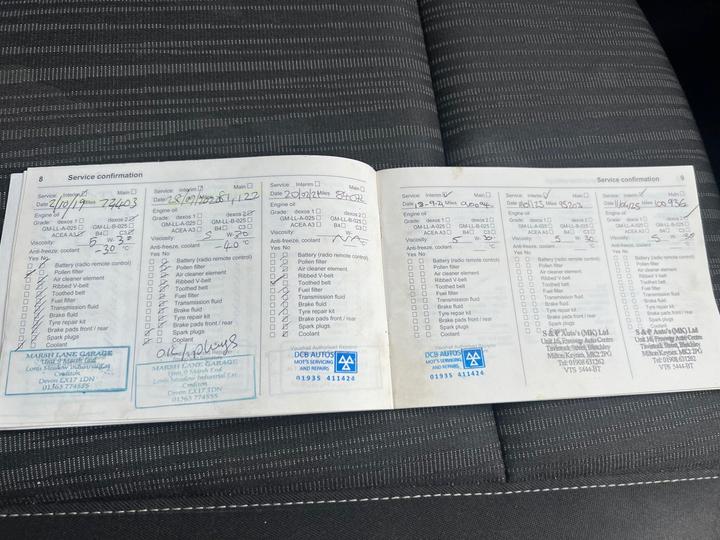 8 Service confirmation
Service: Interim Main
Date 2/10/19 Miles 77403
Engine oil
Grade: dexos 1 dexos 2
GM-LL-A-025 GM-LL-B-025
ACEA A3 B4 C3
Viscosity: 5 W- 30
Anti-freeze, coolant -30 °C
Yes No
Battery (radio remote control)
Pollen filter
Air cleaner element
Ribbed V-belt
Toothed belt
Fuel filter
Transmission fluid
Brake fluid
Tyre repair kit
Brake pads front / rear
Spark plugs
Coolant
MARSH LANE GARAGE
Unit 9 Marsh End
Lords Meadow Industrial Est
Crediton
Devon EX17 1DN
01363 774555
Service: Interim Main
Engine oil
Grade: dexos 1 dexos 2
GM-LL-A-025 GM-LL-B-025
ACEA A3 B4 C3
Viscosity: 5 W- 30
Anti-freeze, coolant -40 °C
Yes No
Battery (radio remote control)
Pollen filter
Air cleaner element
Ribbed V-belt
Toothed belt
Fuel filter
Transmission fluid
Brake fluid
Tyre repair kit
Brake pads front / rear
Spark plugs
Coolant
MARSH LANE GARAGE
Unit 9 Marsh End
Lords Meadow Industrial Est
Crediton
Devon EX17 1DN
01363 774555
Service: Interim Main
Date 20/02/21 Miles
Engine oil
Grade: dexos 1 dexos 2
GM-LL-A-025 GM-LL-B-025
ACEA A3 B4 C3
Viscosity: W-
Anti-freeze, coolant N/A °C
Yes No
Battery (radio remote control)
Pollen filter
Air cleaner element
Ribbed V-belt
Toothed belt
Fuel filter
Transmission fluid
Brake fluid
Tyre repair kit
Brake pads front / rear
Spark plugs
Coolant
DCB AUTOS
MOT'S SERVICING
AND REPAIRS
01935 411424
Service confirmation 9
Service: Interim Main
Date Miles
Engine oil
Grade: dexos 1 dexos 2
GM-LL-A-025 GM-LL-B-025
ACEA A3 B4 C3
Viscosity: 5 W- 30
Anti-freeze, coolant °C
Yes No
Battery (radio remote control)
Pollen filter
Air cleaner element
Ribbed V-belt
Toothed belt
Fuel filter
Transmission fluid
Brake fluid
Tyre repair kit
Brake pads front / rear
Spark plugs
Coolant
DCB AUTOS
MOT'S SERVICING
AND REPAIRS
01935 411424
Service: Interim Main
Date Miles 95203
Engine oil
Grade: dexos 1 dexos 2
GM-LL-A-025 GM-LL-B-025
ACEA A3 B4 C3
Viscosity: 5 W- 30
Anti-freeze, coolant °C
Yes No
Battery (radio remote control)
Pollen filter
Air cleaner element
Ribbed V-belt
Toothed belt
Fuel filter
Transmission fluid
Brake fluid
Tyre repair kit
Brake pads front / rear
Spark plugs
Coolant
S & P Auto's (MK) Ltd
Tavistock Street, Bletchley
Milton Keynes, MK2 2PG
Tel: 01908 631262
VTS 5444-BT
Service: Interim Main
Date Miles 100936
Engine oil
Grade: dexos 1 dexos 2
GM-LL-A-025 GM-LL-B-025
ACEA A3 B4 C3
Viscosity: 5 W- 30
Anti-freeze, coolant °C
Yes No
Battery (radio remote control)
Pollen filter
Air cleaner element
Ribbed V-belt
Toothed belt
Fuel filter
Transmission fluid
Brake fluid
Tyre repair kit
Brake pads front / rear
Spark plugs
S & P Auto's (MK) Ltd
Tavistock Street, Bletchley
Milton Keynes, MK2 2PG
Tel: 01908 631262
VTS 5444-BT